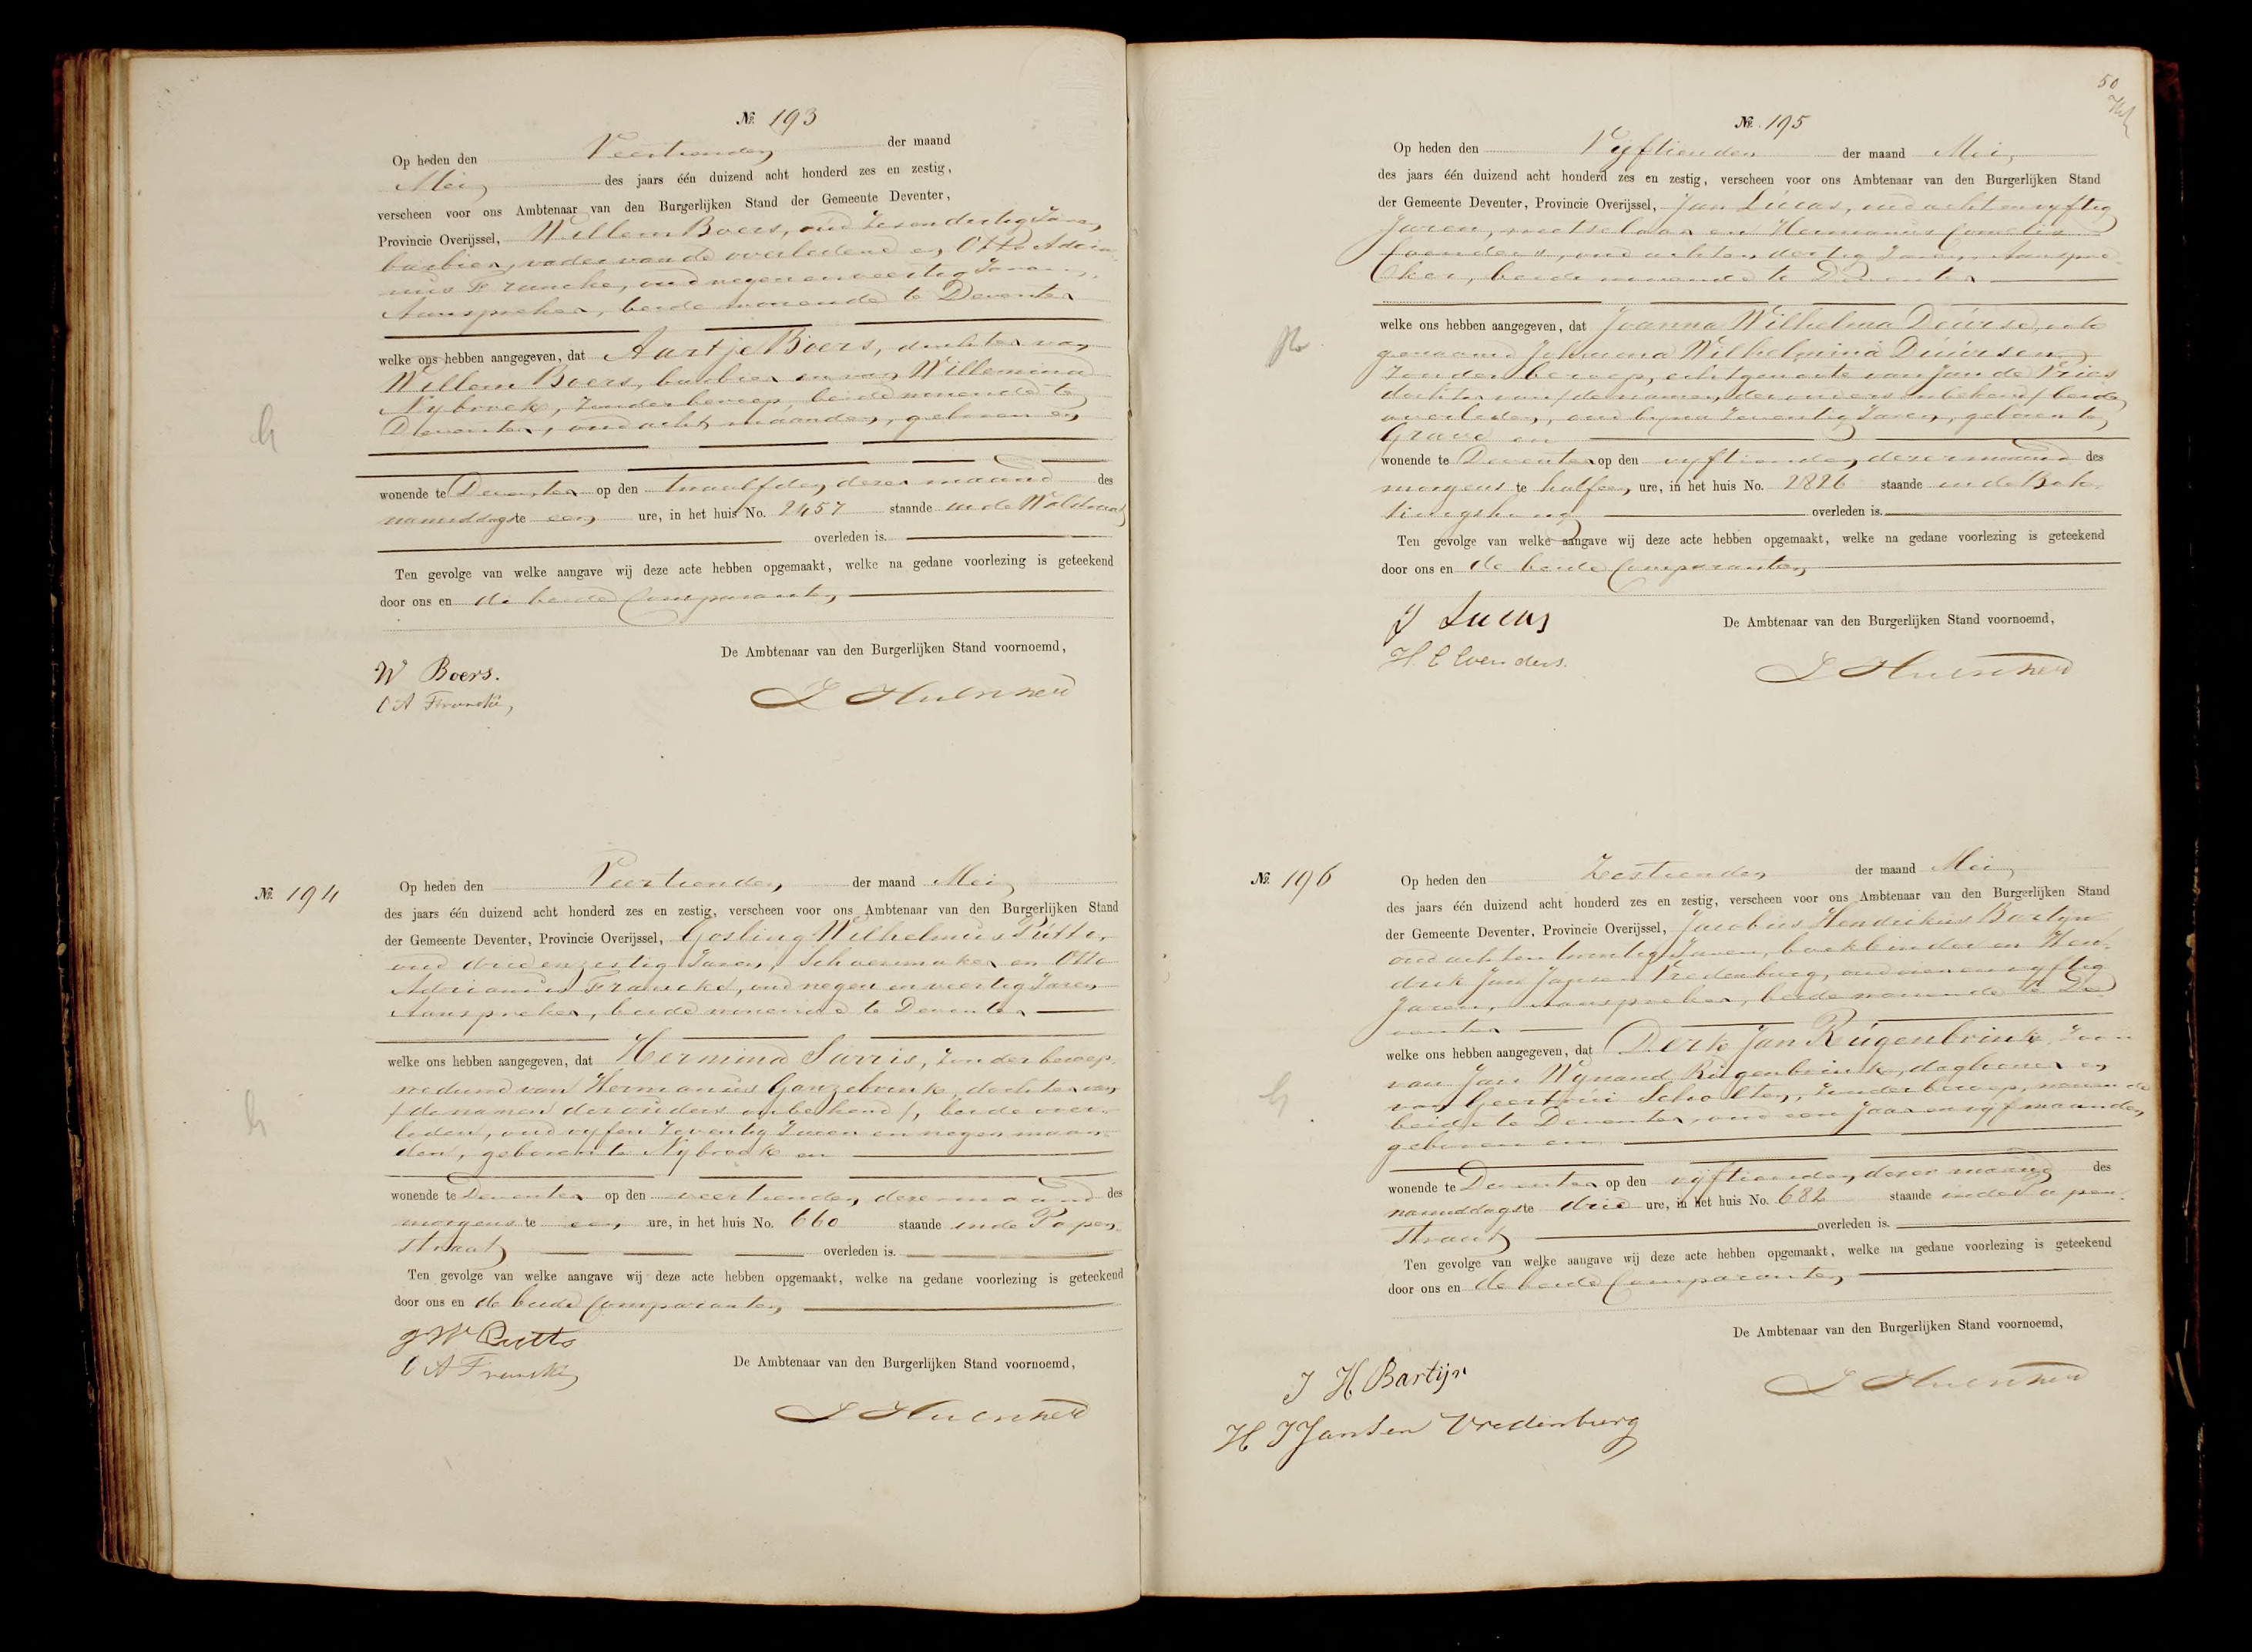 № 193
Op heden den Veertienden der maand
Mei des jaars één duizend acht honderd zes en zestig,
verscheen voor ons Ambtenaar van den Burgerlijken Stand der Gemeente Deventer,
Provincie Overijssel, Willem Boers, oud zesendertig Jaren,
barbier, vader van de overledene en Otto Adria-
nus Francke, oud negen en veertig Jaren,
Aanspreker, beide wonende te Deventer
welke ons hebben aangegeven, dat Aartje Boers, dochter van
Willem Boers, barbier en van Willemina
Nybroek, zonder beroep, beide wonende te
Deventer, oud acht maanden, geboren en
wonende te Deventer op den twaalfden dezer maand des
namiddags te een ure, in het huis No. 2457 staande in de
overleden is.
Ten gevolge van welke aangave wij deze acte hebben opgemaakt, welke na gedane voorlezing is geteekend
door ons en de beide Comparanten
De Ambtenaar van den Burgerlijken Stand voornoemd,
W Boers.
O A Francke,
№ 194
Op heden den Veertienden der maand Mei
des jaars één duizend acht honderd zes en zestig, verscheen voor ons Ambtenaar van den Burgerlijken Stand
der Gemeente Deventer, Provincie Overijssel, Gosling Wilhelmus Putto,
oud drie en zestig Jaren, Schoenmaker en Otto
Adrianus Francké, oud negen en veertig Jaren
Aanspreker, beide wonende te Deventer
welke ons hebben aangegeven, dat Hermina Sarris, zonder beroep,
weduwe van Hermanus Ganzebrink, dochter van
/ de namen der ouders onbekend /, beide over-
leden, oud vyf en zeventig Jaren en negen maan-
den, geboren te Nybroek en
wonende te Deventer op den veertienden dezer maand des
morgens te een ure, in het huis No. 660 staande in de Papen-
straat overleden is.
Ten gevolge van welke aangave wij deze acte hebben opgemaakt, welke na gedane voorlezing is geteekend
door ons en de beide Comparanten
G W Putto
O A Francke
De Ambtenaar van den Burgerlijken Stand voornoemd,
50
№ 195
Op heden den Vyftienden der maand Mei
des jaars één duizend acht honderd zes en zestig, verscheen voor ons Ambtenaar van den Burgerlijken Stand
der Gemeente Deventer, Provincie Overijssel, Jan Lucas, oud acht en vyftig
Jaren, metselaar en Hermanus Cornelis
Coenders, oud acht en dertig Jaren, Aanspre-
ker, beide wonende te Deventer
welke ons hebben aangegeven, dat Joanna Wilhelma Deurse, ook
genaamd Johanna Wilhelmina Duursen,
zonder beroep, echtgenoote van Jan de Vries
dochter van / de namen der ouders onbekend / beide
overleden, oud byna zeventig Jaren, geboren te
Grave en
wonende te Deventer op den vyftienden dezer maand des
morgens te half een ure, in het huis No. 2826 staande in de Bok-
kingshang overleden is.
Ten gevolge van welke aangave wij deze acte hebben opgemaakt, welke na gedane voorlezing is geteekend
door ons en de beide Comparanten
J Lucas
H. C Coenders.
De Ambtenaar van den Burgerlijken Stand voornoemd,
№ 196
Op heden den Zestienden der maand Mei
des jaars één duizend acht honderd zes en zestig, verscheen voor ons Ambtenaar van den Burgerlijken Stand
der Gemeente Deventer, Provincie Overijssel, Jacobus Hendrikus Bartijn
oud acht en twintig Jaren, boekbinder en Hen-
drik Jan Jansen Vredenburg, oud en vyftig
Jaren, Aanspreker, beide wonende te De-
venter
welke ons hebben aangegeven, dat Derk Jan Rugenbrink, Zoon
van Jan Wynand Rugenbrink, daglooner en
van Geertrui Scholten, zonder beroep, wonende
beide te Deventer, oud een Jaar en vyf maanden,
geboren en
wonende te Deventer op den vyftienden dezer maand des
namiddags te drie ure, in het huis No. 682 staande in de Papen-
straat overleden is.
Ten gevolge van welke aangave wij deze acte hebben opgemaakt, welke na gedane voorlezing is geteekend
door ons en de beide Comparanten
De Ambtenaar van den Burgerlijken Stand voornoemd,
J H Bartijn
H J Jansen Vredenburg